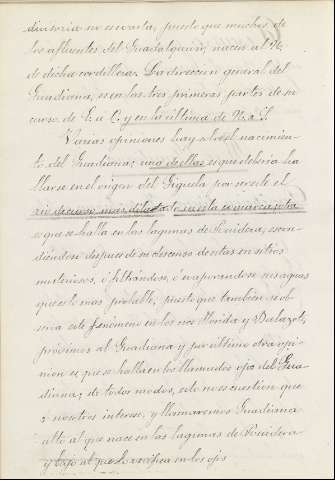 divisoria no es exacta, puesto que muchos de
los afluentes del Guadalquivir, nacen al N.
de dicha cordillera. La dirección general del
Guadiana, es en las tres primeras partes de su
curso de E. a O. y en la última de N. a S.
Varias opiniones hay sobre el nacimien-
to del Guadiana; una de ellas es que debería ha
llarse en el origen del Gigüela por ser este el
río de curso mas dilatado
es que se halla en las lagunas de Ruidera, escon-
diéndose despues de su descenso de estas en sitios
misteriosos, ó filtrándose, ó evaporandose sus aguas
que es lo mas probable, puesto que también se ob-
serva este fenómeno en los rios
próximos al Guadiana y por último otra opi-
nion es, que se halla en los llamados ojos del Gua-
diana; de todos modos, esto no es cuestion que
a nosotros interese, y llamaremos Guadiana
alto al que nace en las lagunas de Ruidera
y bajo al que lo verifica en los ojos